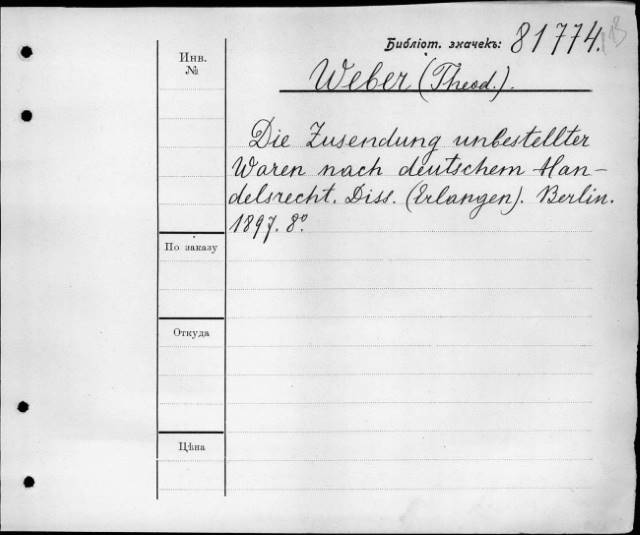 Библіот. значекъ: 81774.
Инв.
№
Weber (Theod.).
Die Zusendung unbestellter
Waren nach deutschem Han-
delsrecht. Diss. (Erlangen). Berlin.
1897. 8º.
По заказу
Откуда
Цѣна